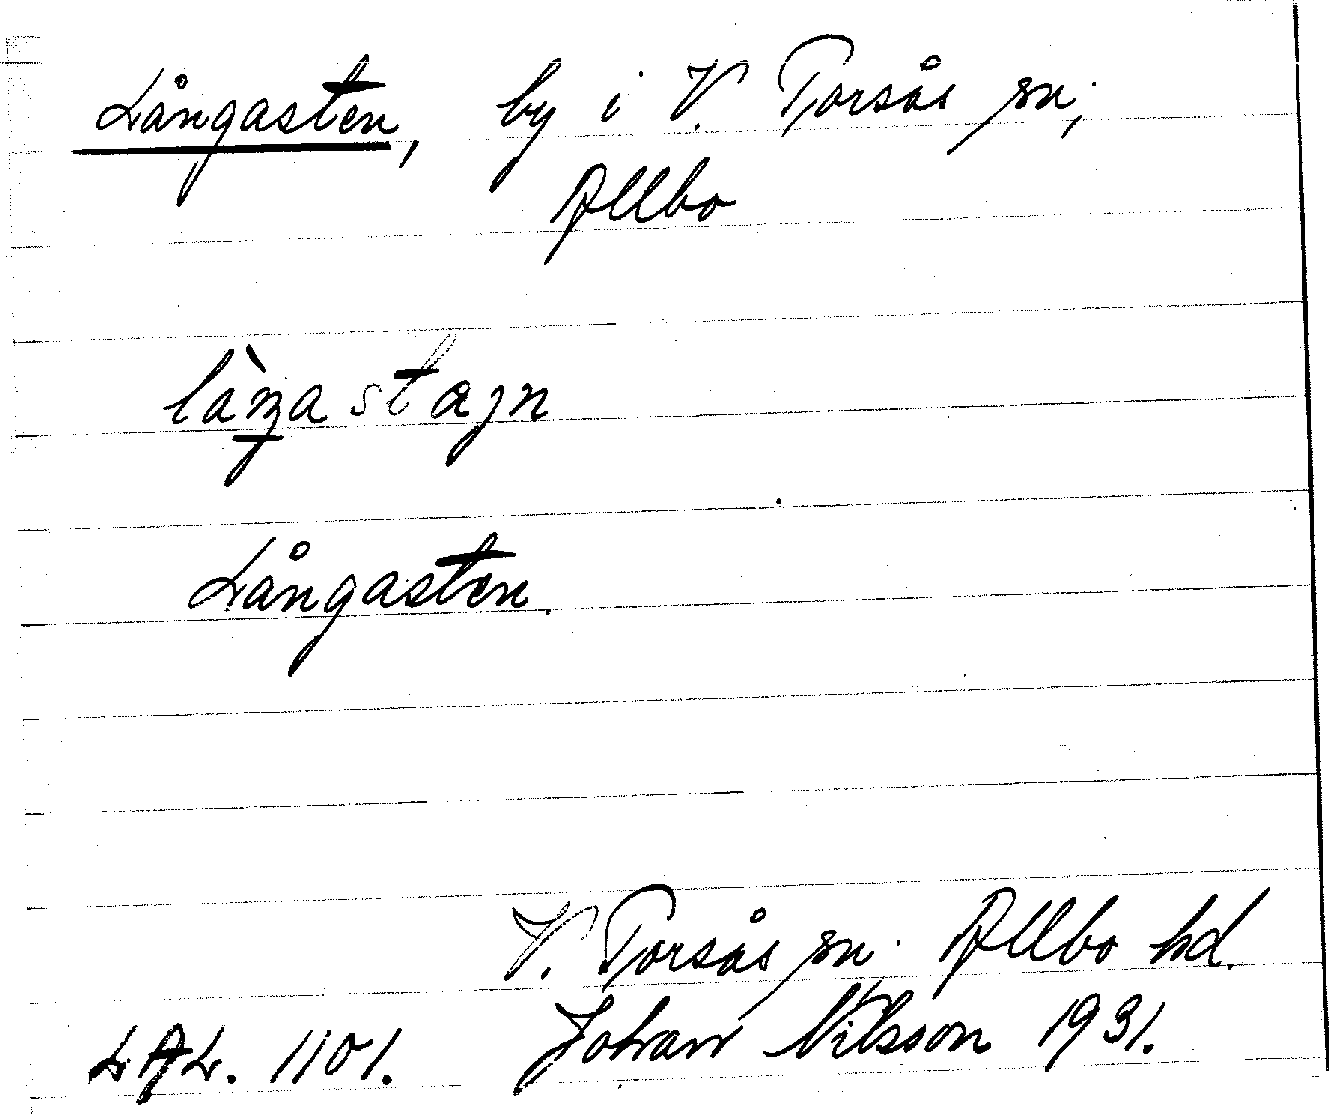 Långasten, by i V. Torsås sn;
Allbo
Långasten.
V. Torsås sn. Allbo hd.
LAL. 1101. Johan Nilsson 1931.